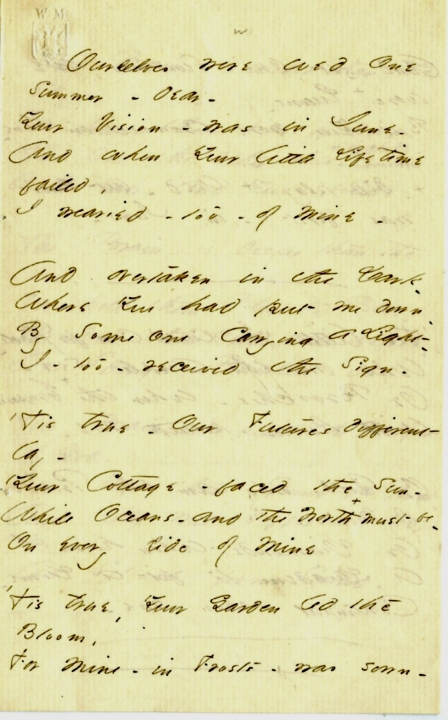 Ourselves were wed one
Summer - dear -
Your Vision - was in June -
And when Your little Lifetime
failed,
I wearied - too - of mine -
And overtaken in the Dark -
Where You had put me down -
By Some one carrying a Light -
I - too - received the Sign -
'Tis true - Our Futures different
lay -
Your Cottage - faced the Sun -
While Oceans - and the North must be -
+
On every side of mine
'Tis true, Your Garden led the
Bloom,
For mine - in Frosts - was sown -